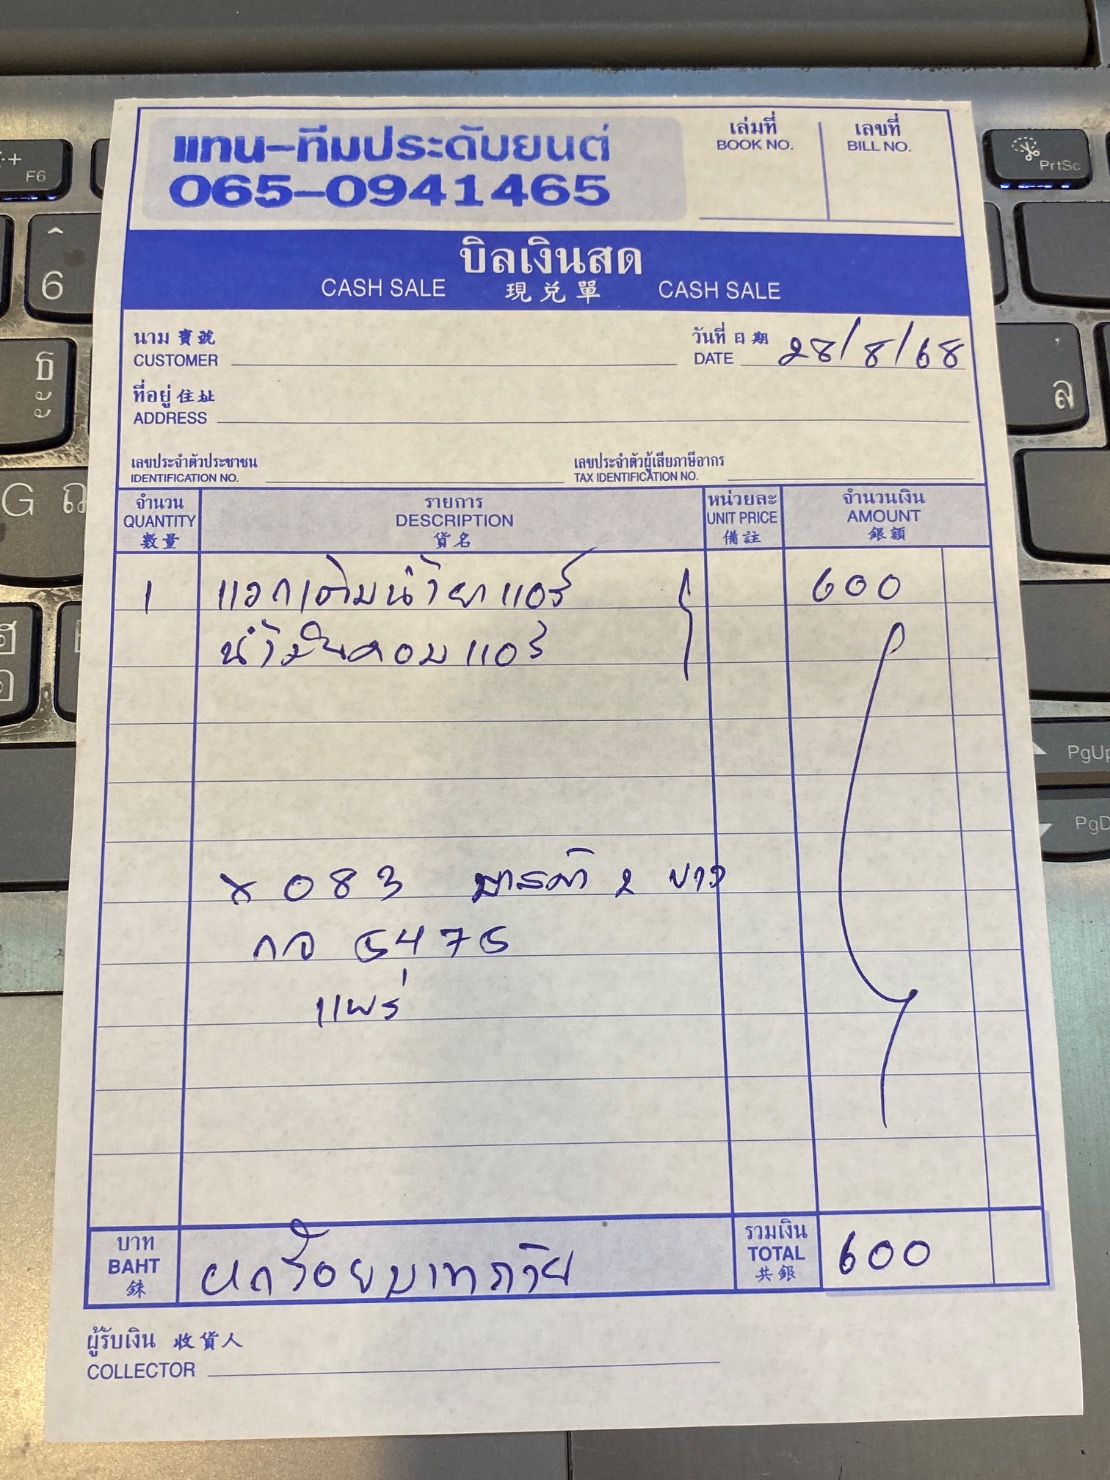 แทน-ทีมประดับยนต์
065-0941465
เล่มที่
BOOK NO.
เลขที่
BILL NO.
บิลเงินสด
CASH SALE 現兌單 CASH SALE
นาม 寶號
CUSTOMER
วันที่ 日期
DATE 28/8/68
ที่อยู่ 住址
ADDRESS
เลขประจำตัวประชาชน
IDENTIFICATION NO.
เลขประจำตัวผู้เสียภาษีอากร
TAX IDENTIFICATION NO.
จำนวน
QUANTITY
數量
รายการ
DESCRIPTION
貨名
หน่วยละ
UNIT PRICE
備註
จำนวนเงิน
AMOUNT
銀額
1 แวกเติมน้ำยาแอร์ 600
น้ำมันคอมแอร์
083
กจ 5475
แพร่
บาท
BAHT
銖
หกร้อยบาทถ้วย
รวมเงิน
TOTAL
共銀
600
ผู้รับเงิน 收貨人
COLLECTOR
F6
PrtSc
6
ธ
ะ
ล
G
PgUp
PgD